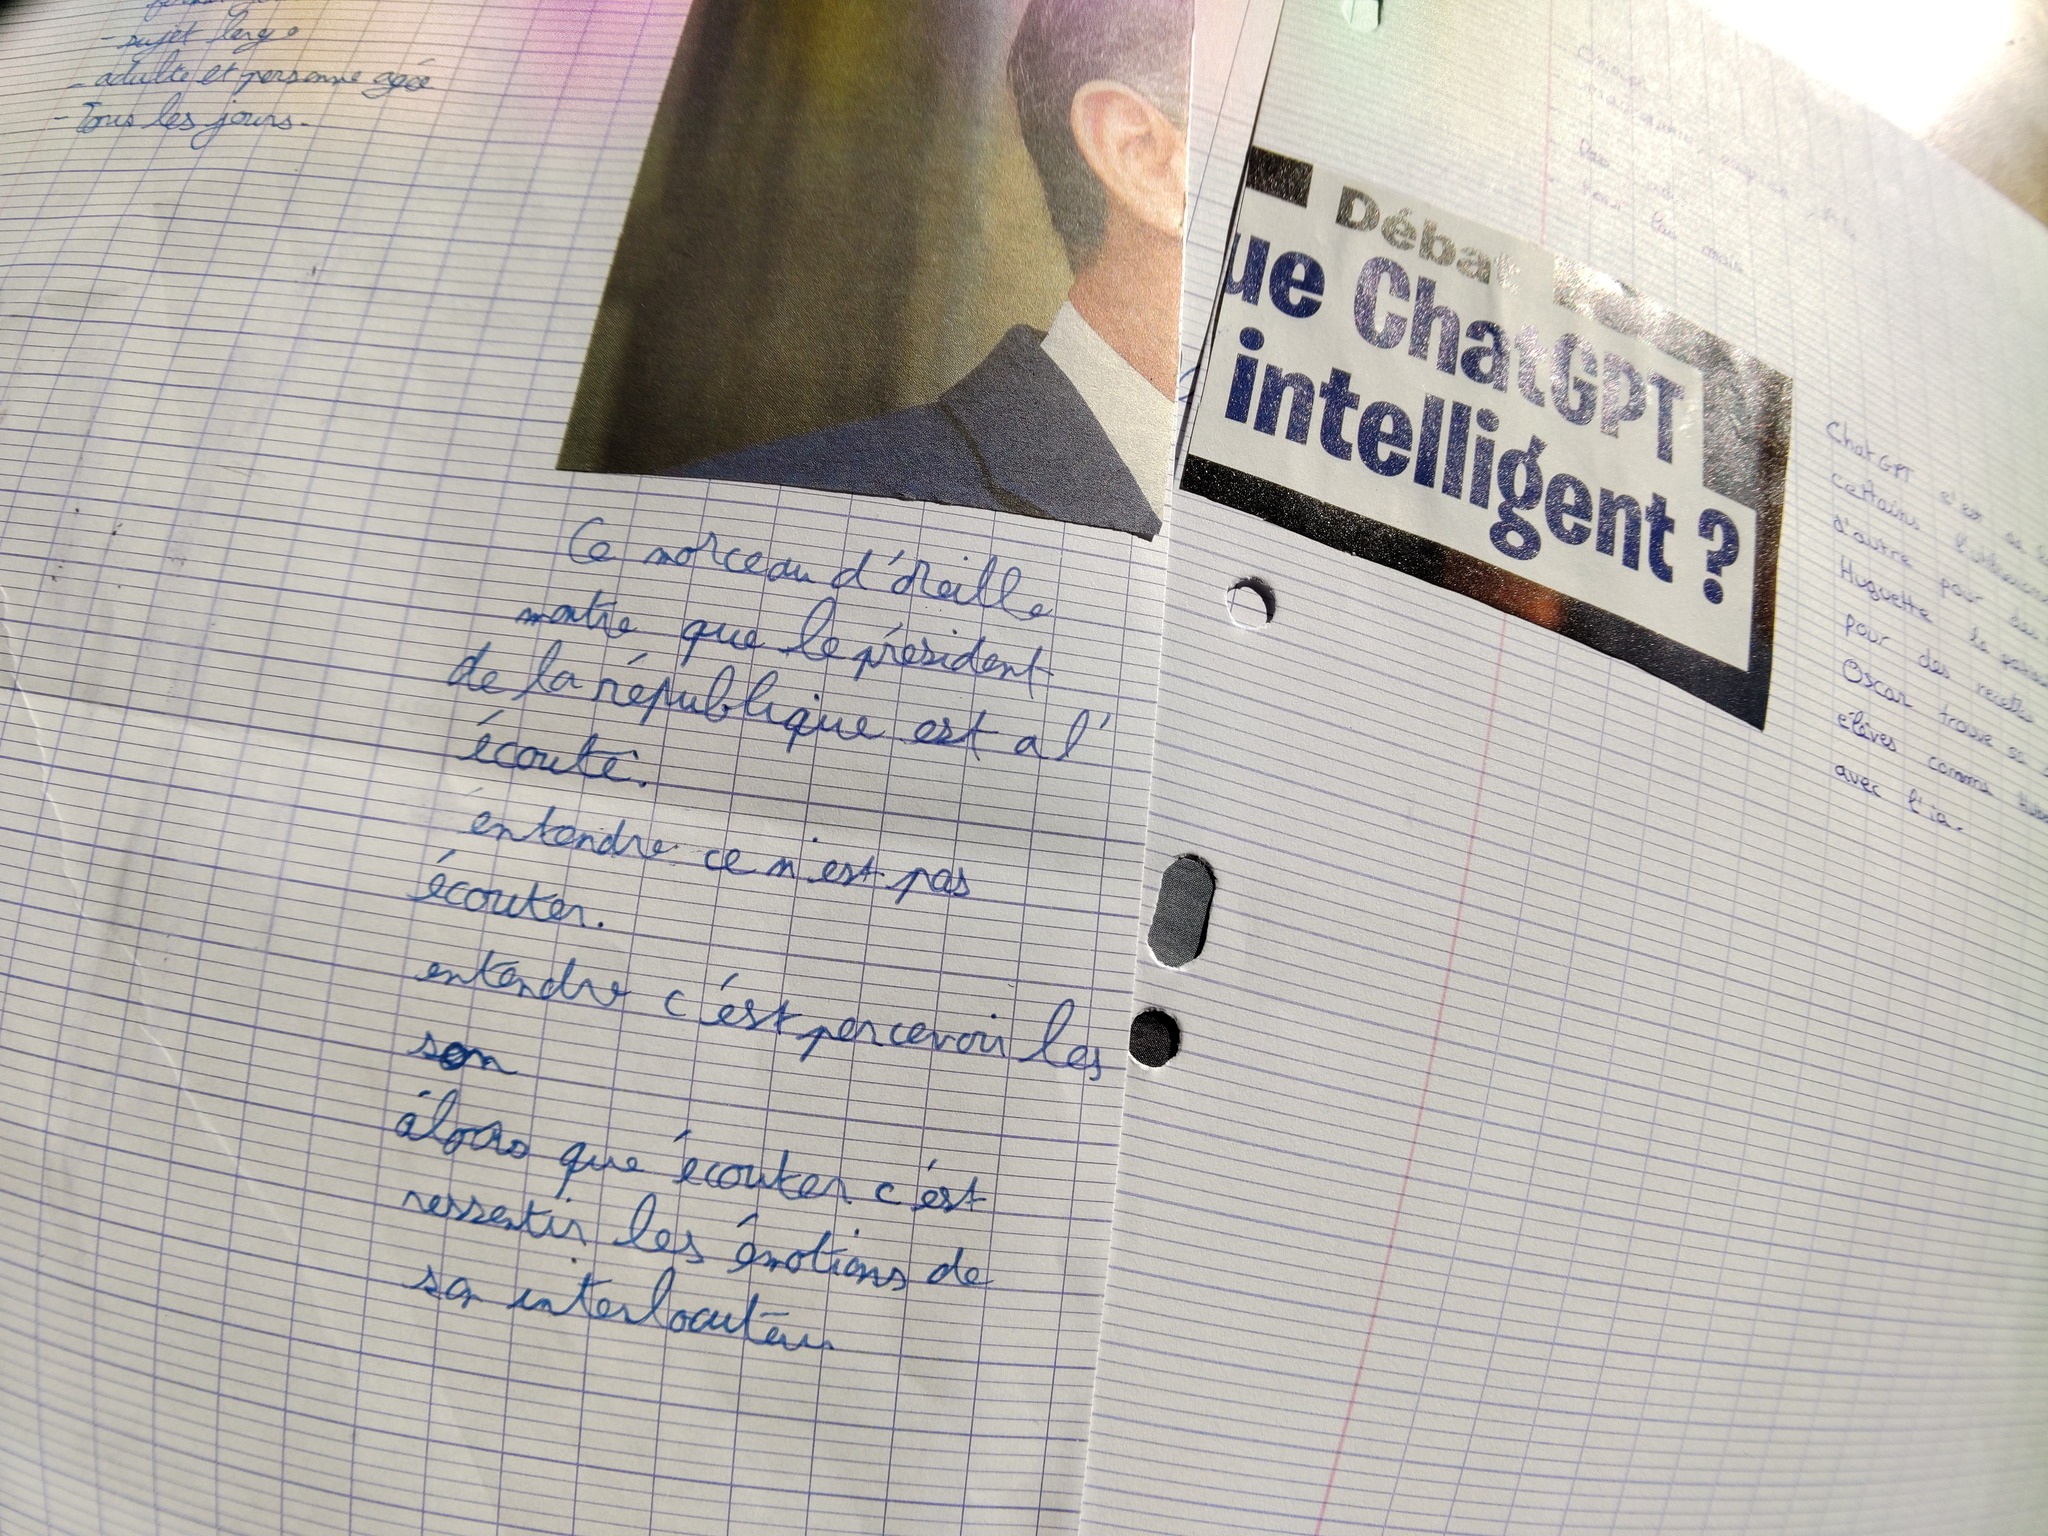 - sujet large
- adulte et personne agée
- Tous les jours.
Ce morceau d'oreille
montre que le président
de la république est a l'
écoute.
entendre ce n'est pas
écouter.
entendre c'est percevoir les
son
alors que écouter c'est
ressentir les émotions de
son interlocuteur
Débat
ue ChatGPT
intelligent ?
ChatGPT c'est
certains
d'autre pour des
Huguette la
pour des recettes
Oscar trouve sa
élèves comme
avec l'ia.